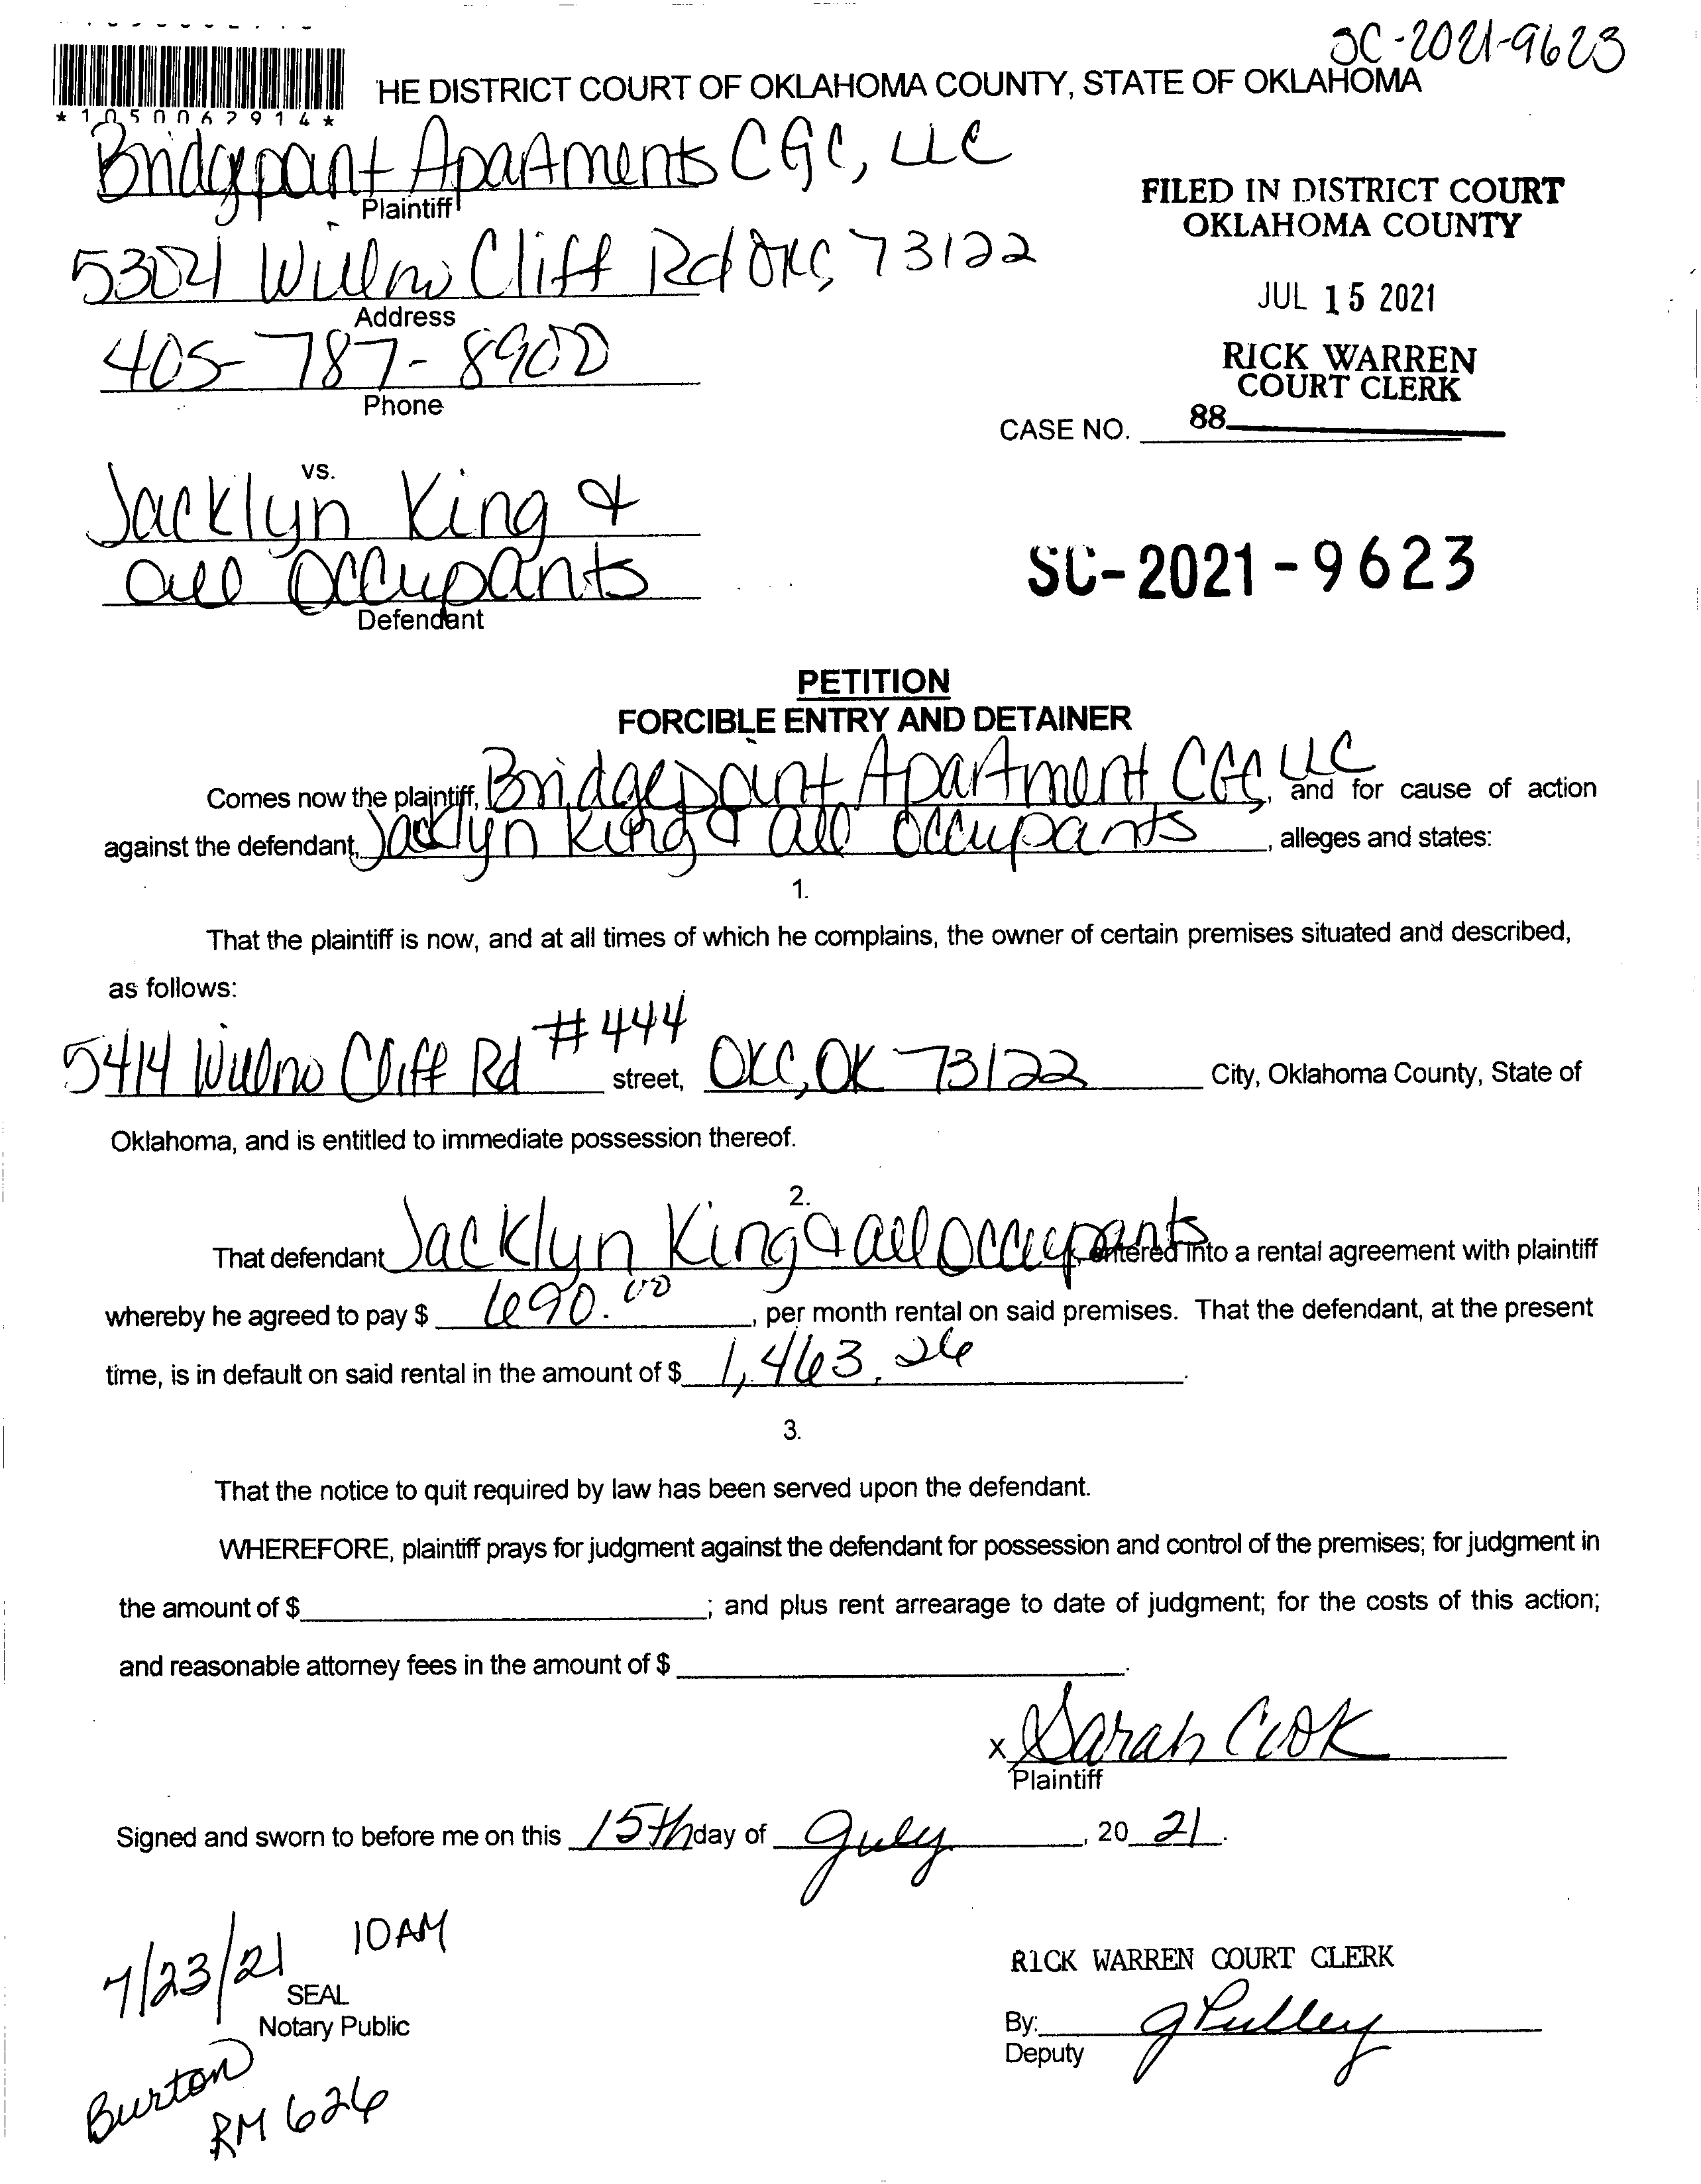 SC-2021-9623
HE DISTRICT COURT OF OKLAHOMA COUNTY, STATE OF OKLAHOMA
*1050062914*
Bridgepoint Apartments CGC, LLC
Plaintiff
FILED IN DISTRICT COURT
OKLAHOMA COUNTY
5304 Willow Cliff Rd OKC, 73122
Address
JUL 15 2021
405-787-8900
Phone
RICK WARREN
COURT CLERK
CASE NO. 88
vs.
Jacklyn King &
all Occupants
Defendant
SC-2021-9623
PETITION
FORCIBLE ENTRY AND DETAINER
Comes now the plaintiff, Bridgepoint Apartment CGC, LLC, and for cause of action
against the defendant, Jacklyn King & all occupants, alleges and states:
1.
That the plaintiff is now, and at all times of which he complains, the owner of certain premises situated and described,
as follows:
5414 Willow Cliff Rd #444 street, OKC, OK 73122 City, Oklahoma County, State of
Oklahoma, and is entitled to immediate possession thereof.
2.
That defendant Jacklyn King & all occupants, entered into a rental agreement with plaintiff
whereby he agreed to pay $ 690.00, per month rental on said premises. That the defendant, at the present
time, is in default on said rental in the amount of $ 1,463.26.
3.
That the notice to quit required by law has been served upon the defendant.
WHEREFORE, plaintiff prays for judgment against the defendant for possession and control of the premises; for judgment in
the amount of $ ; and plus rent arrearage to date of judgment; for the costs of this action;
and reasonable attorney fees in the amount of $ .
x Sarah Cook
Plaintiff
Signed and sworn to before me on this 15th day of July, 20 21.
7/23/21 10AM
SEAL
Notary Public
Burton
RM 626
RICK WARREN COURT CLERK
By: J Pulley
Deputy